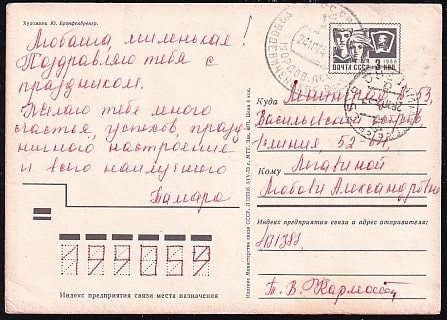 Художник Ю. Бронфенбренер.
Любаша, миленькая!
Поздравляю тебя с
праздником.
Желаю тебе много
счастья, успехов, празд
ничного настроения
и всего наилучшего
Тамара
ПОЧТА СССР
1966
Куда
Ленинград
53
Васильевский остров,
линия, 52-
Кому
Любови Александровне
Индекс предприятия связи и адрес отправителя:
Т. В.
199053
Индекс предприятия связи места назначения
Издание Министерства связи СССР.
Цена 4 коп.